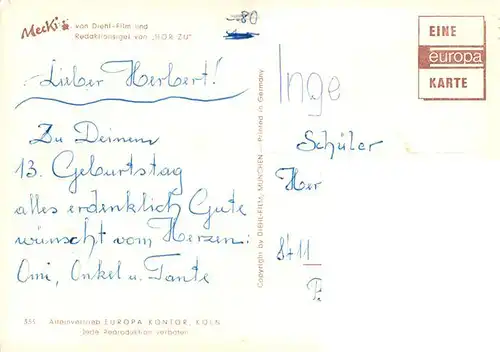 Mecki von Diehl-Film und
Redaktionsigel von „HÖR ZU"
-.80
EINE
europa
KARTE
Lieber Herbert!
Zu Deinem
13. Geburtstag
alles erdenklich Gute
wünscht vom Herzen:
Omi, Onkel u. Tante
Copyright by DIEHL-FILM, MÜNCHEN — Printed in Germany
Inge
Schüler
Her
8411
Alleinvertrieb EUROPA KONTOR, KÖLN
Jede Reproduktion verboten